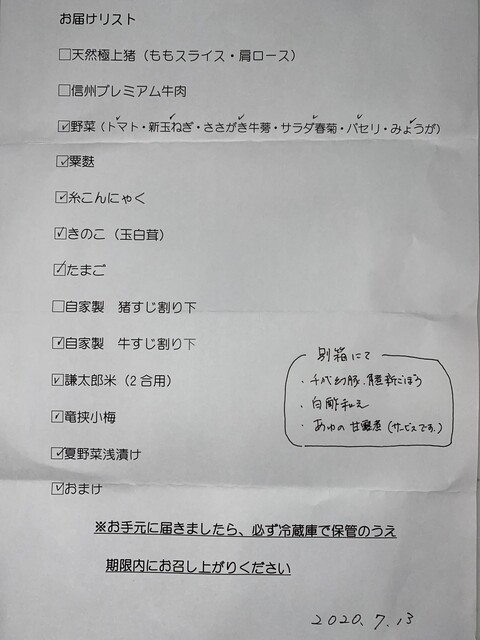 お届けリスト
□天然極上猪（ももスライス・肩ロース）
□信州プレミアム牛肉
☑野菜（トマト・新玉ねぎ・ささがき牛蒡・サラダ春菊・パセリ・みょうが）
☑粟麩
☑糸こんにゃく
☑きのこ（玉白茸）
☑たまご
□自家製　猪すじ割り下
☑自家製　牛すじ割り下
☑謙太郎米（2合用）
☑竜挟小梅
☑夏野菜浅漬け
☑おまけ
別箱にて
・千代幻豚、新ごぼう
・白酢和え
・あゆの甘露煮（サービスです。）
※お手元に届きましたら、必ず冷蔵庫で保管のうえ
期限内にお召し上がりください
2020.7.13